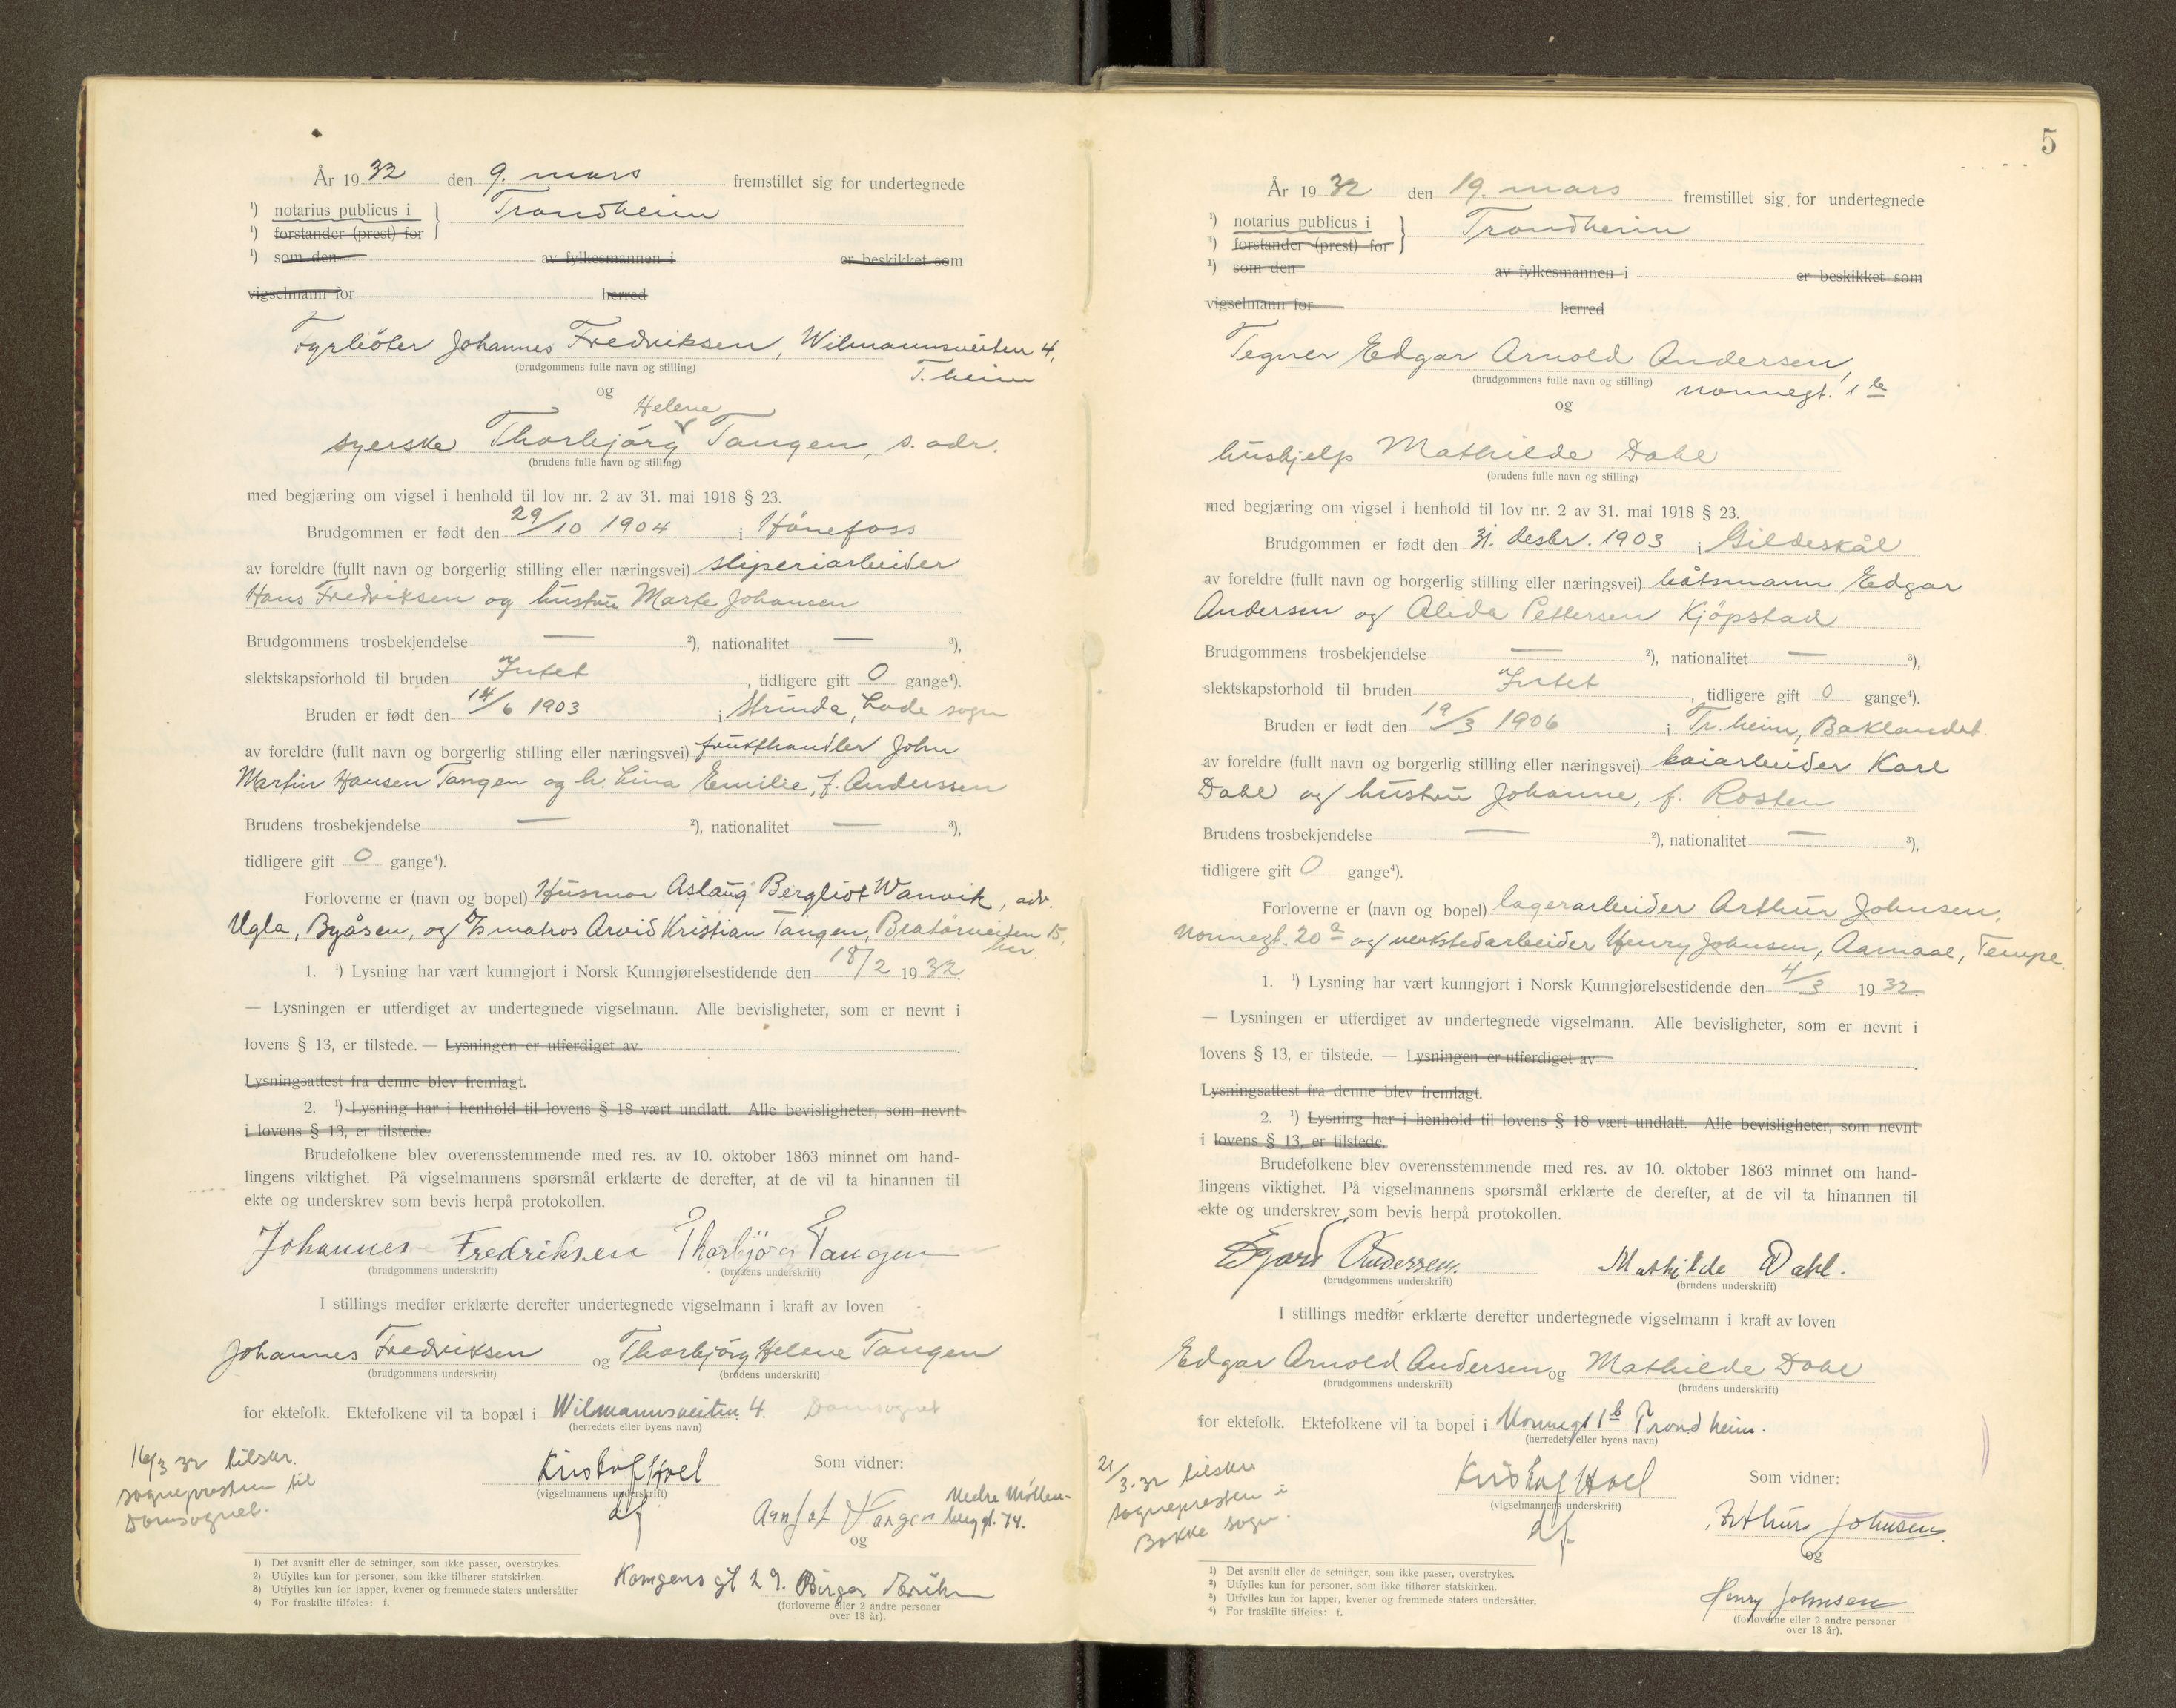 År 1932 den 9. mars fremstillet sig for undertegnede
¹) notarius publicus i } Trondheim
¹) forstander (prest) for
¹) som den av fylkesmannen i er beskikket som
vigselmann for herred
Fyrbøter Johannes Fredriksen, Wilmannsveiten 4,
T.heim
(brudgommens fulle navn og stilling)
og
Helene
syerske Thorbjørg Tangen, s. adr.
(brudens fulle navn og stilling)
med begjæring om vigsel i henhold til lov nr. 2 av 31. mai 1918 § 23.
Brudgommen er født den 29/10 1904 i Hønefoss
av foreldre (fullt navn og borgerlig stilling eller næringsvei) sliperiarbeider
Hans Fredriksen og hustru Marte Johansen
Brudgommens trosbekjendelse — ²), nationalitet — ³),
slektskapsforhold til bruden Intet, tidligere gift 0 gange⁴).
Bruden er født den 14/6 1903 i Strinda, Lade sogn
av foreldre (fullt navn og borgerlig stilling eller næringsvei) frukthandler John
Martin Hansen Tangen og h. Lina Emilie, f. Anderssen
Brudens trosbekjendelse — ²), nationalitet — ³),
tidligere gift 0 gange⁴).
Forloverne er (navn og bopel) Husmor Aslaug Bergliot Wanvik, adr.
Ugla, Byåsen, og matros Arvid Kristian Tangen, Bratørveiten 15,
her
1. ¹) Lysning har vært kunngjort i Norsk Kunngjørelsestidende den 18/2 1932.
— Lysningen er utferdiget av undertegnede vigselmann. Alle bevisligheter, som er nevnt i
lovens § 13, er tilstede. — Lysningen er utferdiget av .
Lysningsattest fra denne blev fremlagt.
2. ¹) Lysning har i henhold til lovens § 18 vært undlatt. Alle bevisligheter, som nevnt
i lovens § 13, er tilstede.
Brudefolkene blev overensstemmende med res. av 10. oktober 1863 minnet om hand-
lingens viktighet. På vigselmannens spørsmål erklærte de derefter, at de vil ta hinannen til
ekte og underskrev som bevis herpå protokollen.
Johannes Fredriksen Thorbjörg Tangen
(brudgommens underskrift) (brudens underskrift)
I stillings medfør erklærte derefter undertegnede vigselmann i kraft av loven
Johannes Fredriksen og Thorbjørg Helene Tangen
(brudgommens underskrift) (brudens underskrift)
for ektefolk. Ektefolkene vil ta bopæl i Wilmannsveiten 4. Domsognet
(herredets eller byens navn)
16/3 32 tilskr.
sognepresten til
Domsognet.
Kristof Hoel
(vigselmannens underskrift)
df
Som vidner:
Tangen Nedre Møllen-
berg gt. 74.
og
Kongens gt 29. Birger
(forloverne eller 2 andre personer
over 18 år).
1) Det avsnitt eller de setninger, som ikke passer, overstrykes.
2) Utfylles kun for personer, som ikke tilhører statskirken.
3) Utfylles kun for lapper, kvener og fremmede staters undersåtter
4) For fraskilte tilføies: f.
5
År 1932 den 19. mars fremstillet sig for undertegnede
¹) notarius publicus i } Trondheim
¹) forstander (prest) for
¹) som den av fylkesmannen i er beskikket som
vigselmann for herred
Tegner Edgar Arnold Andersen,
(brudgommens fulle navn og stilling) Nonnegt. 1 b
og
hushjelp Mathilde Dahl
(brudens fulle navn og stilling)
med begjæring om vigsel i henhold til lov nr. 2 av 31. mai 1918 § 23.
Brudgommen er født den 31. desbr. 1903 i Gildeskål
av foreldre (fullt navn og borgerlig stilling eller næringsvei) båtsmann Edgar
Andersen og Alida Pettersen Kjøpstad
Brudgommens trosbekjendelse — ²), nationalitet — ³),
slektskapsforhold til bruden Intet, tidligere gift 0 gange⁴).
Bruden er født den 19/3 1906 i Tr.heim, Baklandet.
av foreldre (fullt navn og borgerlig stilling eller næringsvei) kaiarbeider Karl
Dahl og hustru Johanne, f. Rosten
Brudens trosbekjendelse — ²), nationalitet — ³),
tidligere gift 0 gange⁴).
Forloverne er (navn og bopel) lagerarbeider Arthur Johnsen,
Nonnegt. 20 a og verkstedarbeider Henry Johnsen, Aamaal, Tempe.
1. ¹) Lysning har vært kunngjort i Norsk Kunngjørelsestidende den 4/3 1932.
— Lysningen er utferdiget av undertegnede vigselmann. Alle bevisligheter, som er nevnt i
lovens § 13, er tilstede. — Lysningen er utferdiget av .
Lysningsattest fra denne blev fremlagt.
2. ¹) Lysning har i henhold til lovens § 18 vært undlatt. Alle bevisligheter, som nevnt
i lovens § 13, er tilstede.
Brudefolkene blev overensstemmende med res. av 10. oktober 1863 minnet om hand-
lingens viktighet. På vigselmannens spørsmål erklærte de derefter, at de vil ta hinannen til
ekte og underskrev som bevis herpå protokollen.
Andersen. Mathilde Dahl.
(brudgommens underskrift) (brudens underskrift)
I stillings medfør erklærte derefter undertegnede vigselmann i kraft av loven
Edgar Arnold Andersen og Mathilde Dahl
(brudgommens underskrift) (brudens underskrift)
for ektefolk. Ektefolkene vil ta bopel i Nonnegt 1 b Trondheim.
(herredets eller byens navn)
21/3.32 tilskr
sognepresten i
Bakke sogn.
Kristof Hoel
(vigselmannens underskrift)
df.
Som vidner:
Arthur Johnsen
og
Henry Johnsen
(forloverne eller 2 andre personer
over 18 år).
1) Det avsnitt eller de setninger, som ikke passer, overstrykes.
2) Utfylles kun for personer, som ikke tilhører statskirken.
3) Utfylles kun for lapper, kvener og fremmede staters undersåtter.
4) For fraskilte tilføies: f.